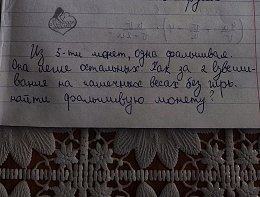 Из 5-ти монет, одна фальшивая.
Она легче остальных. Как за 2 взвеши-
вание на чашечных весах без гирь
найти фальшивую монету?